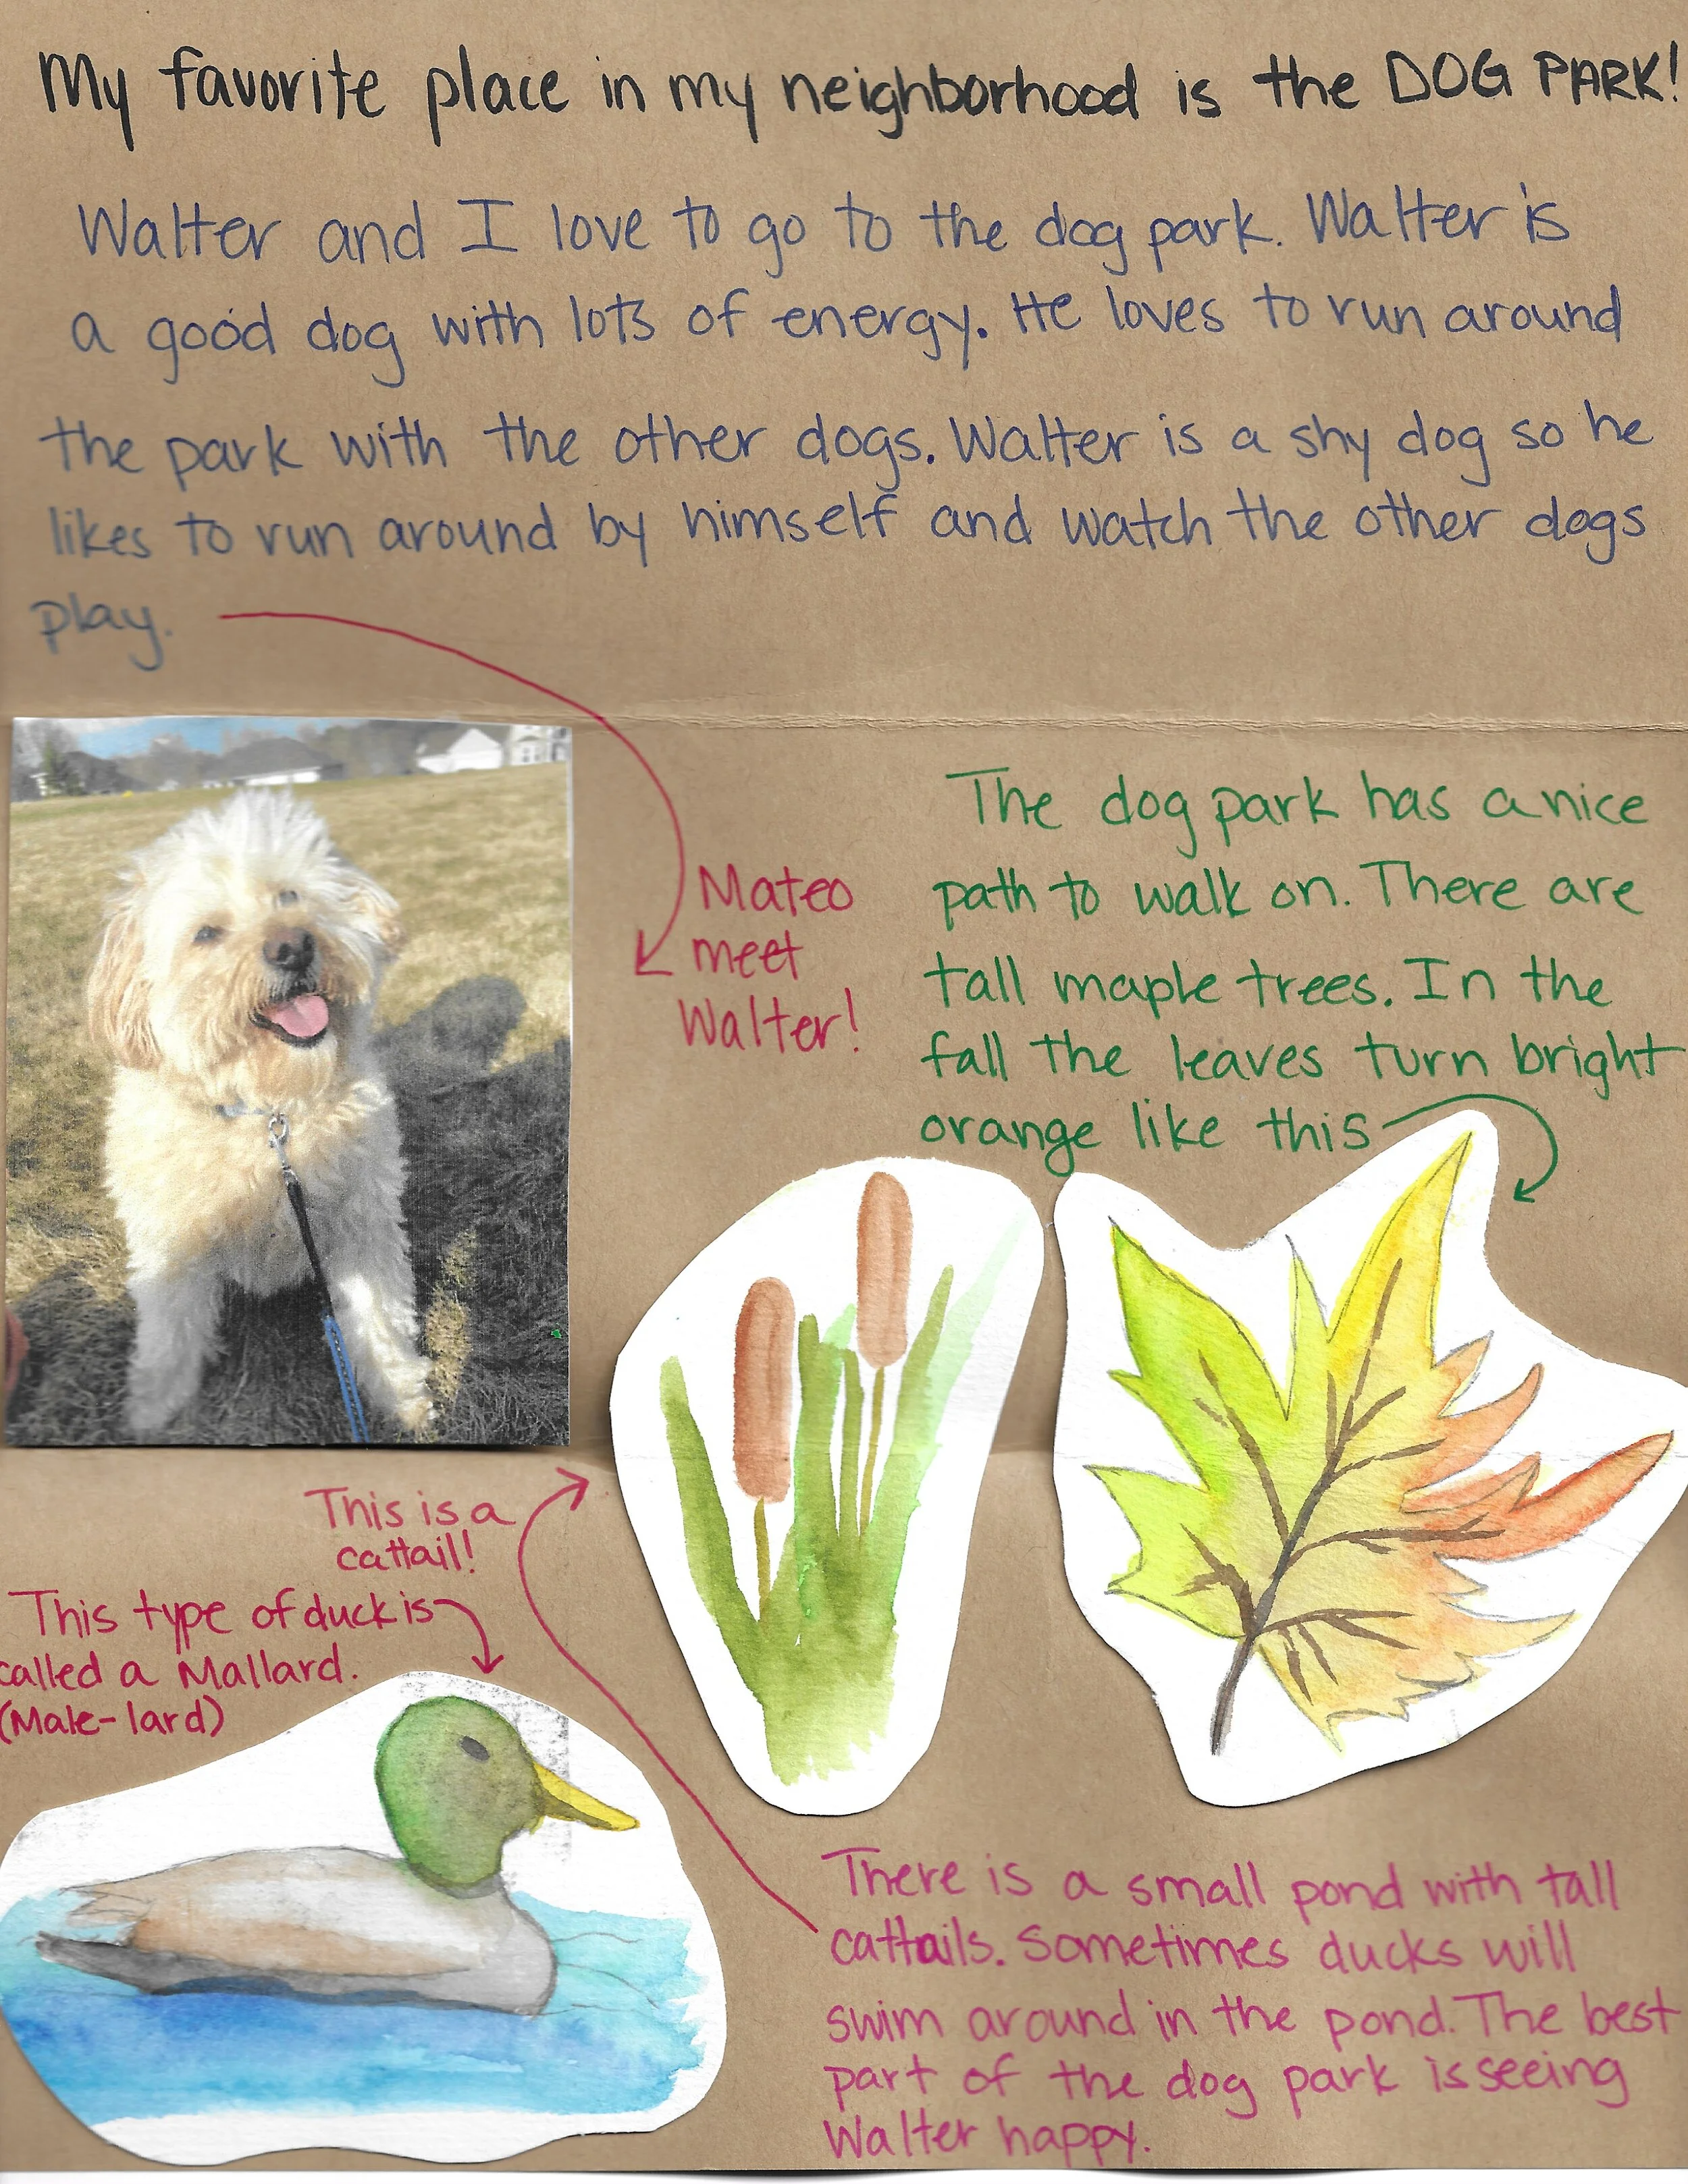 My favorite place in my neighborhood is the DOG PARK!
Walter and I love to go to the dog park. Walter is
a good dog with lots of energy. He loves to run around
the park with the other dogs. Walter is a shy dog so he
likes to run around by himself and watch the other dogs
play.
Mateo
meet
Walter!
The dog park has a nice
path to walk on. There are
tall maple trees. In the
fall the leaves turn bright
orange like this
This is a
cattail!
This type of duck is
called a Mallard.
(Male-lard)
There is a small pond with tall
cattails. Sometimes ducks will
swim around in the pond. The best
part of the dog park is seeing
Walter happy.